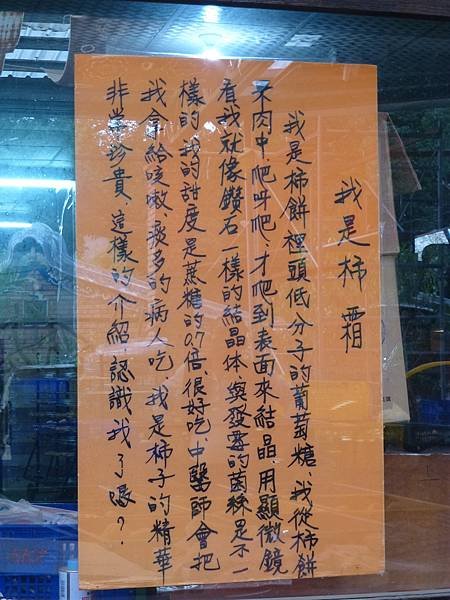 我是柿霜
我是柿餅裡頭低分子的葡萄糖、我從柿餅
果肉中、爬呀爬、才爬到表面來結晶、用顯微鏡
看我就像鑽石一樣的結晶体、與發霉的菌絲是不一
樣的、我的甜度是蔗糖的0.7倍、很好吃、中醫師會把
我拿給咳嗽、痰多的病人吃、我是柿子的精華
非常珍貴、這樣的介紹認識我了嗎？